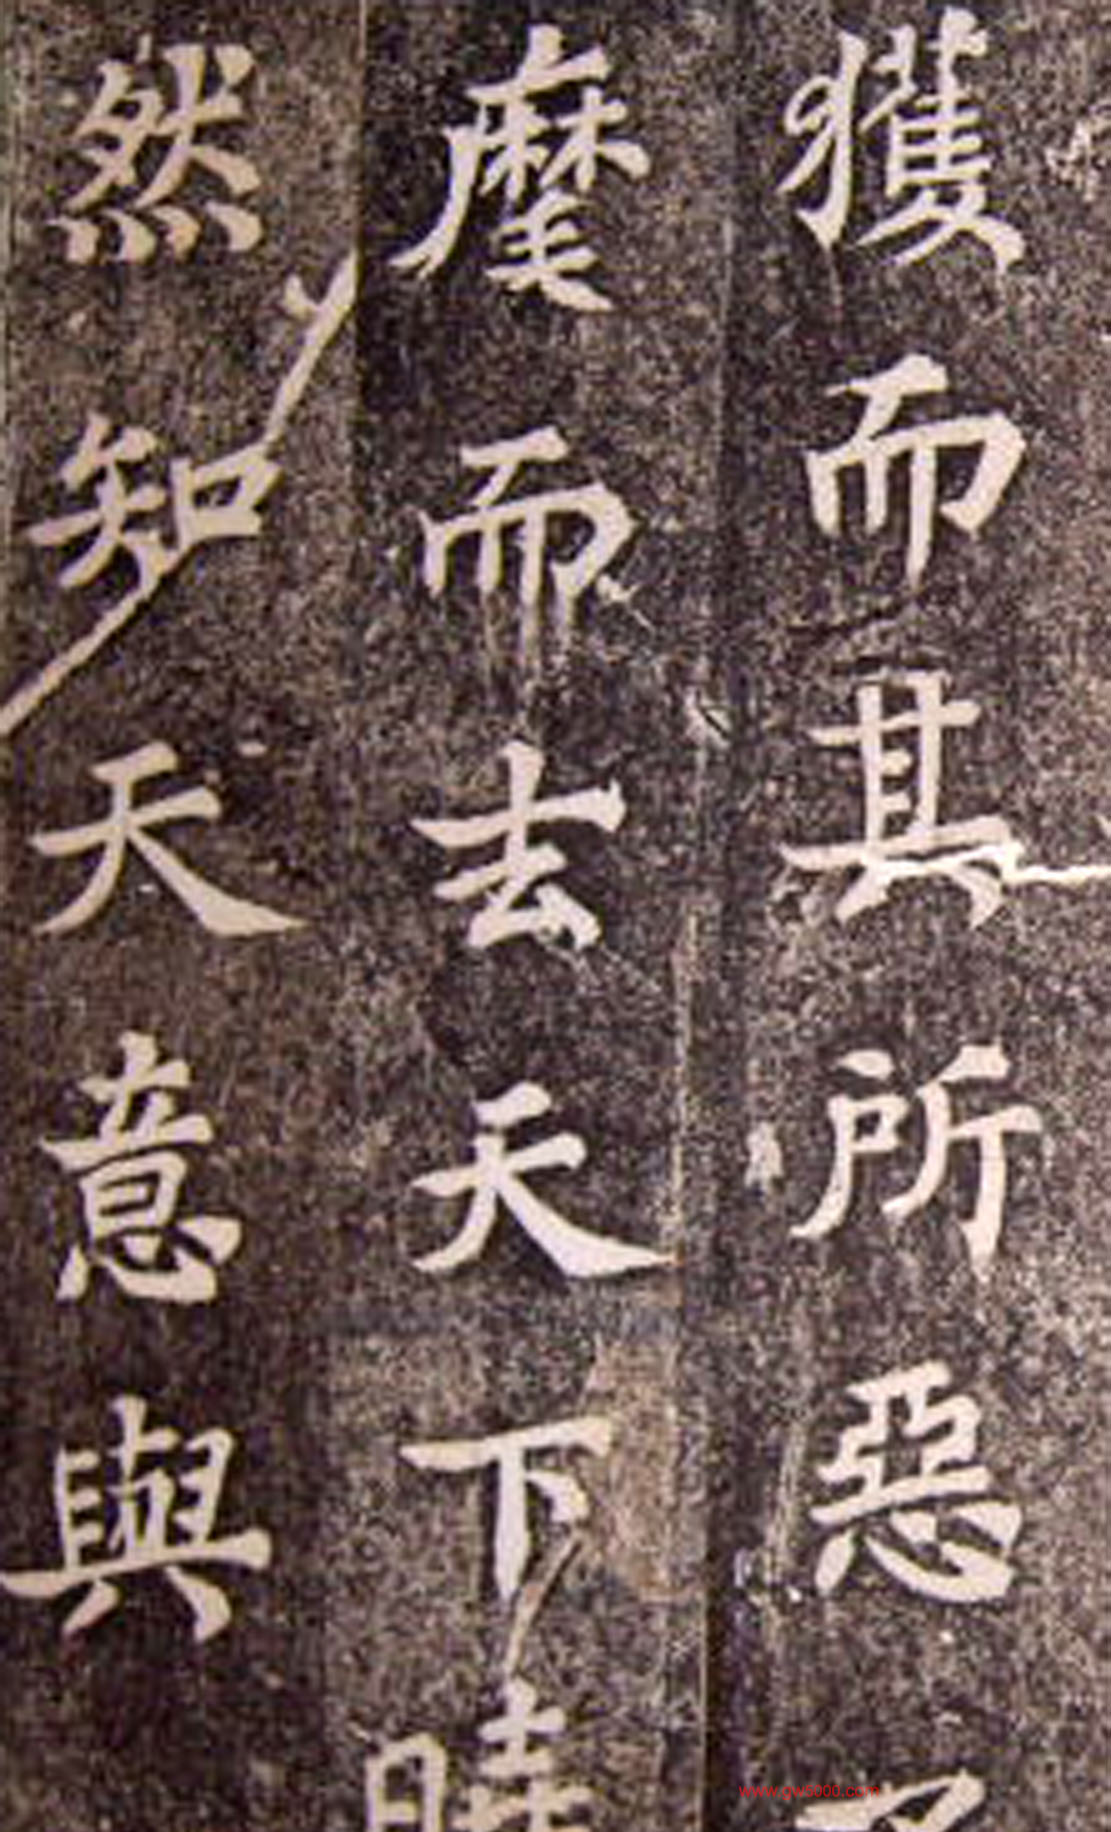 獲而其所惡
麾而去天下
然知天意與